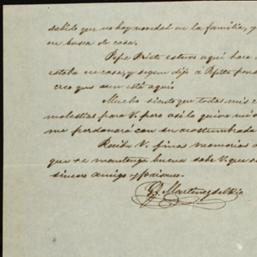 debido que no hay novedad en la familia, y
en busca de casa.
Pepe Prieto estuvo aquí hace
estaba en casa, y segun dijo á Pepita
creo que aun está aquí
Mucho siento que todas mis
molestias para V. pero así lo quiso mi
me perdonará con su acostumbrada
Reciba V. finas memorias
que se mantenga bueno sabe V. que
sincero amigo y
G. Martinez del Rio